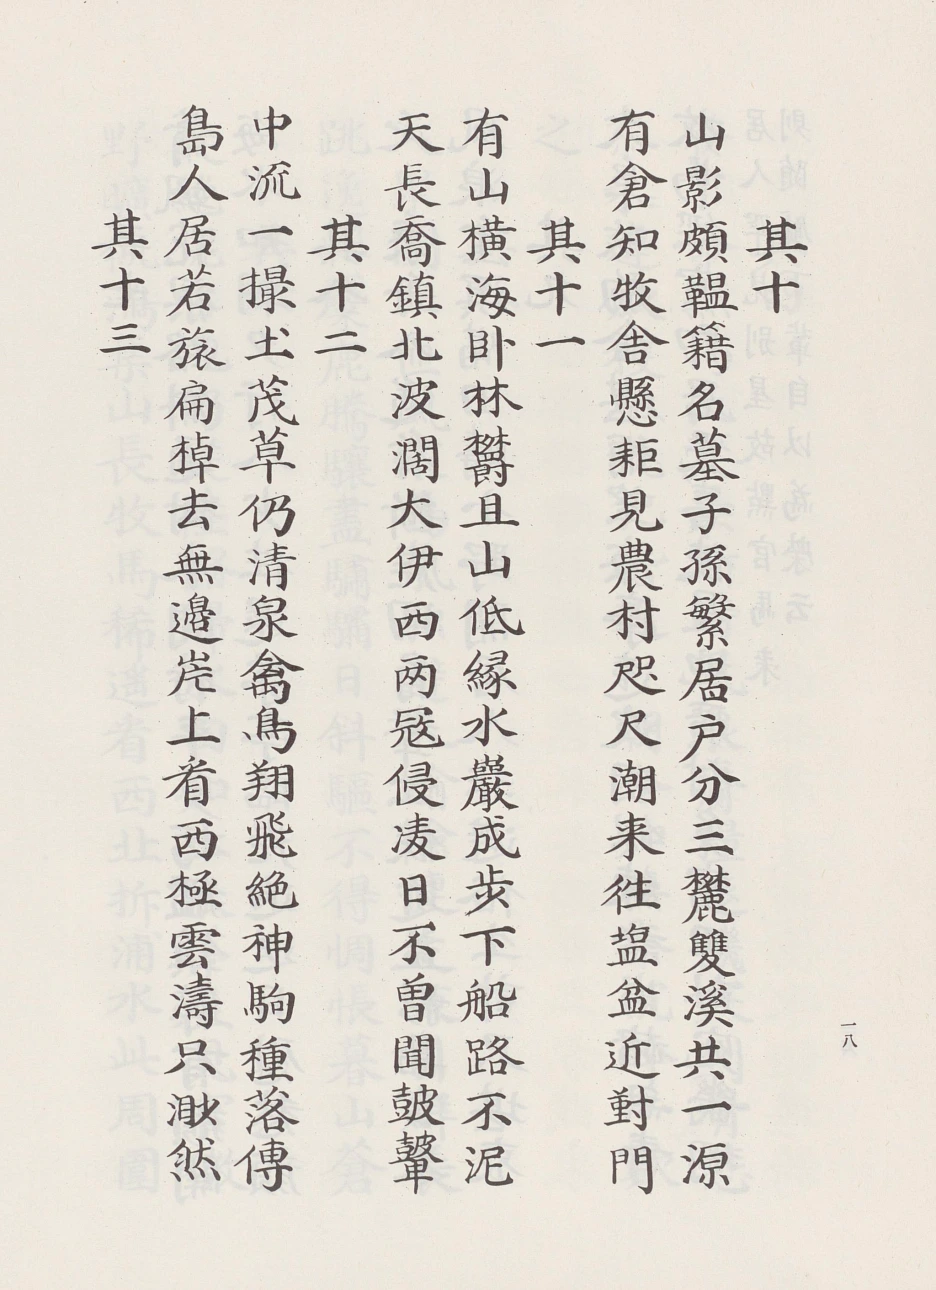 其十
山影頗韞籍名墓子孫繁居户分三麓雙溪共一源
有倉知牧舎懸耟見農村咫尺潮来徃塭盆近對門
其十一
有山橫海卧林欝且山低縁水巖成步下船路不泥
天長喬鎮北波濶大伊西两冦侵凌日不曾聞皷鼙
其十二
中流一撮土茂草仍清泉禽鳥翔飛絶神駒種落傳
島人居若旅扁棹去無邉岸上看西極雲濤只渺然
其十三
一八